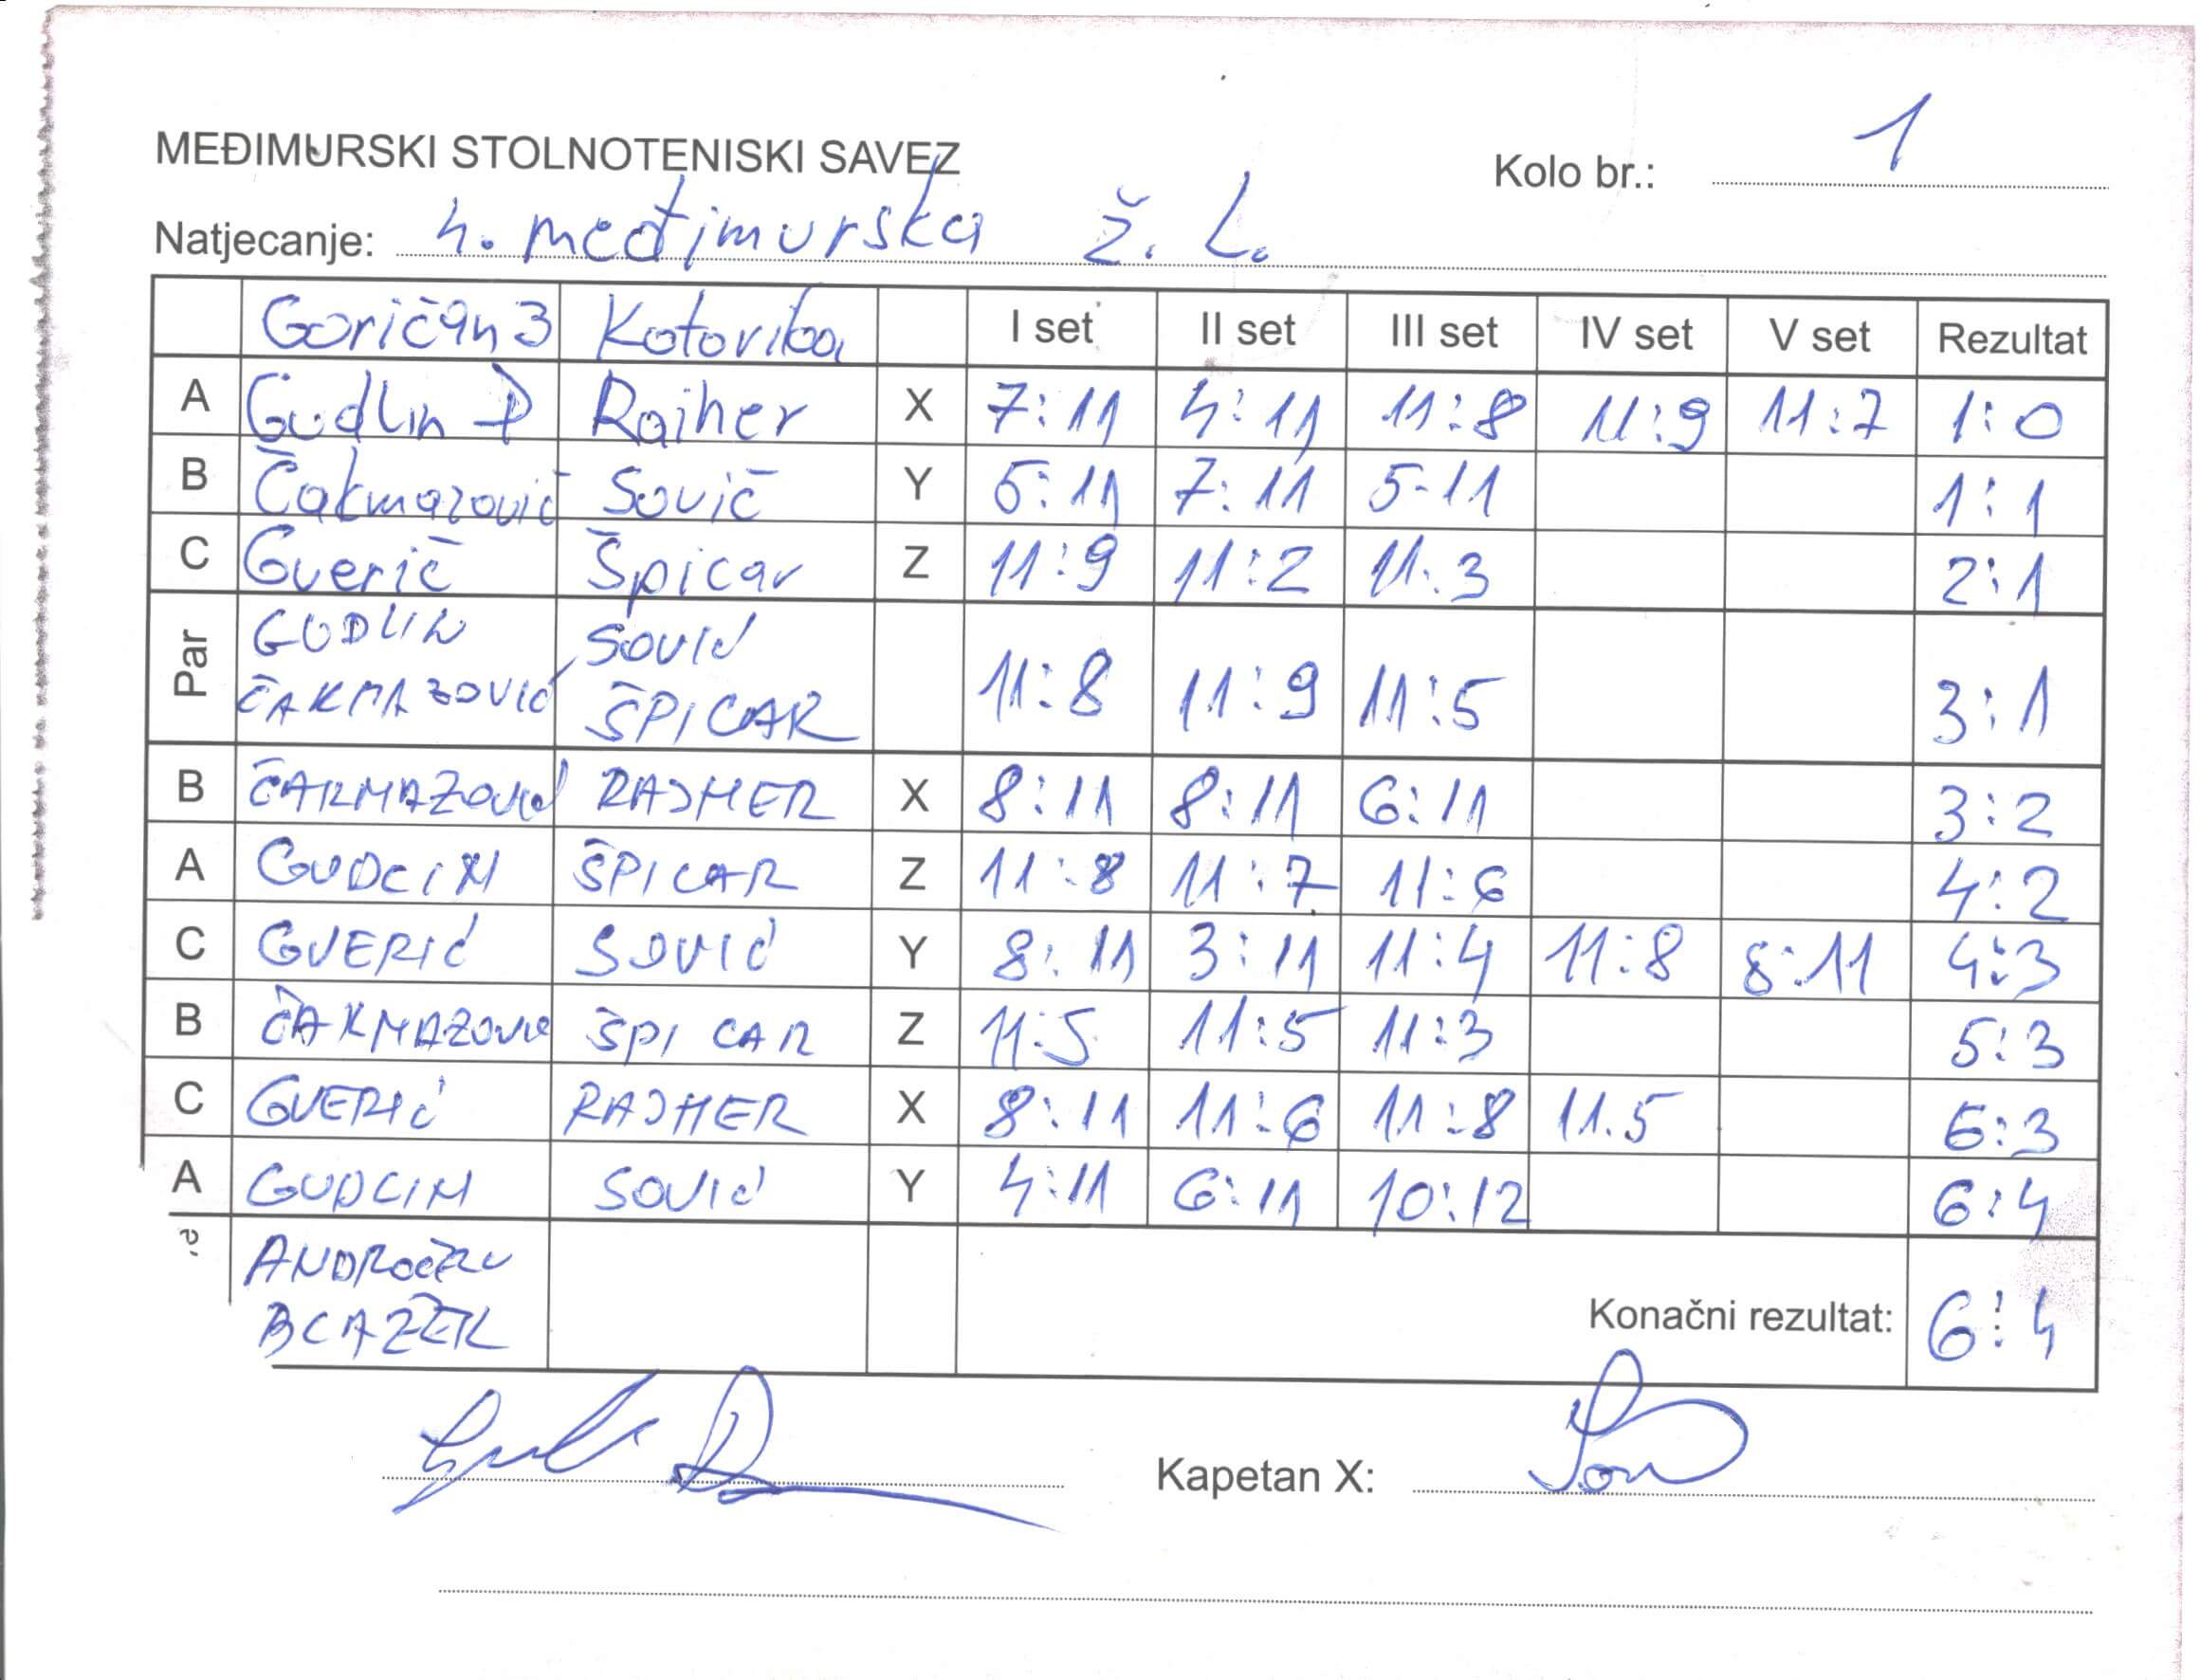 MEĐIMURSKI STOLNOTENISKI SAVEZ
Kolo br.: 1
Natjecanje: 4. međimurska ž. L.
Goričan 3 Kotoriba I set II set III set IV set V set Rezultat
A Gudlin D Rajher X 7:11 4:11 11:8 11:9 11:7 1:0
B Čakmazović Sović Y 6:11 7:11 5-11 1:1
C Gverić Špicar Z 11:9 11:2 11:3 2:1
Par
GUDLIN SOVIĆ
ČAKMAZOVIĆ ŠPICAR
11:8 11:9 11:5 3:1
B ČAKMAZOVIĆ RAJHER X 8:11 8:11 6:11 3:2
A GUDLIN ŠPICAR Z 11:8 11:7 11:6 4:2
C GVERIĆ SOVIĆ Y 8:11 3:11 11:4 11:8 8:11 4:3
B ČAKMAZOVIĆ ŠPICAR Z 11:5 11:5 11:3 5:3
C GVERIĆ RAJHER X 8:11 11:6 11:8 11.5 6:3
A GUDLIN SOVIĆ Y 4:11 6:11 10:12 6:4
BLAŽEK
Konačni rezultat: 6:4
Kapetan X: